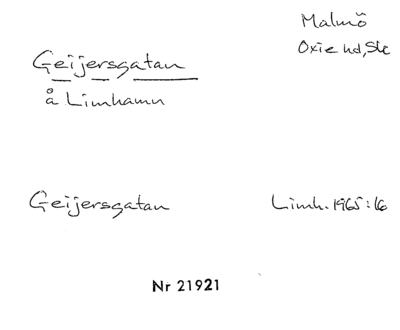 Malmö
Oxie hd, Sk
Geijersgatan
å Limhamn
Geijersgatan Limh. 1965:16
Nr 21921